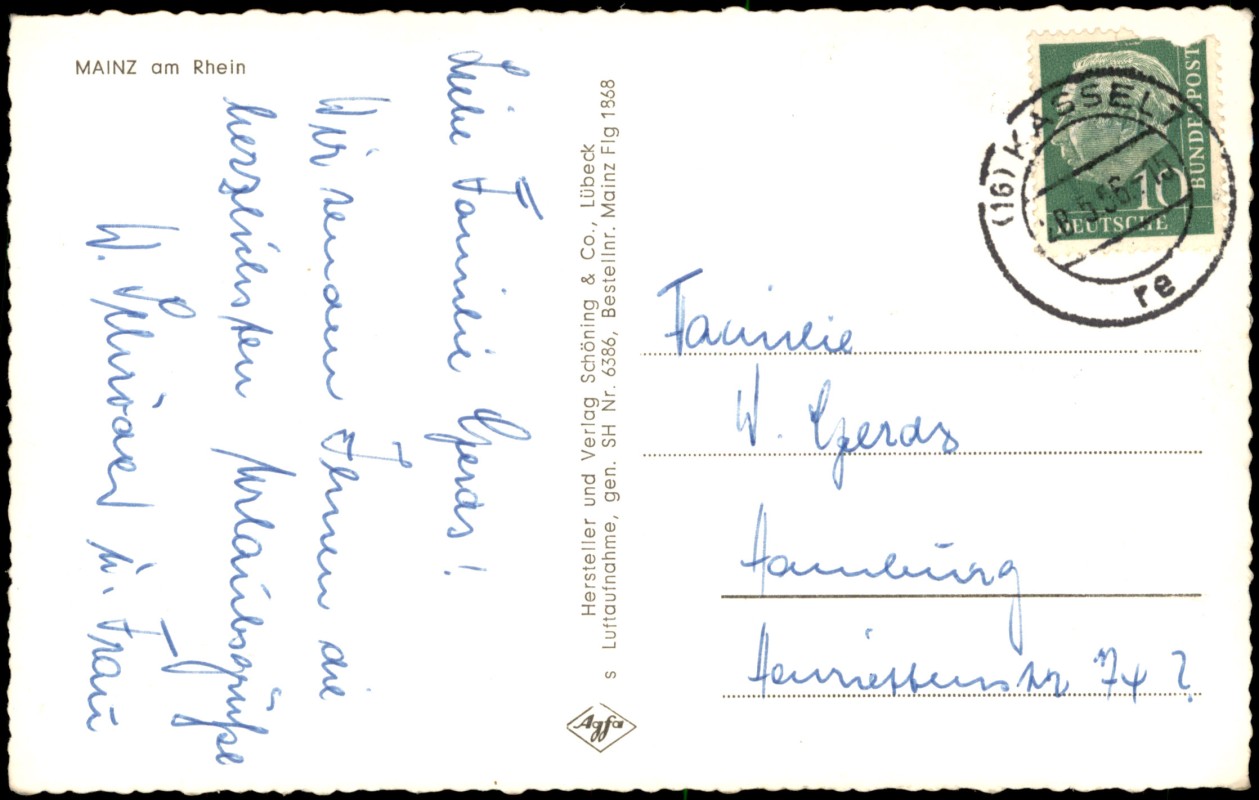 MAINZ am Rhein
Liebe Familie Gerds!
Wir senden Ihnen die
herzlichsten Urlaubsgrüße
W. Schröder u. Frau
Hersteller und Verlag Schöning & Co., Lübeck
s Luftaufnahme, gen. SH Nr. 6386, Bestellnr. Mainz Flg 1868
Agfa
(16) KASSEL 7
28.5.56.-15
re
10
DEUTSCHE
BUNDESPOST
Familie
W. Gerds
Hamburg
Henriettenstr 74 ?